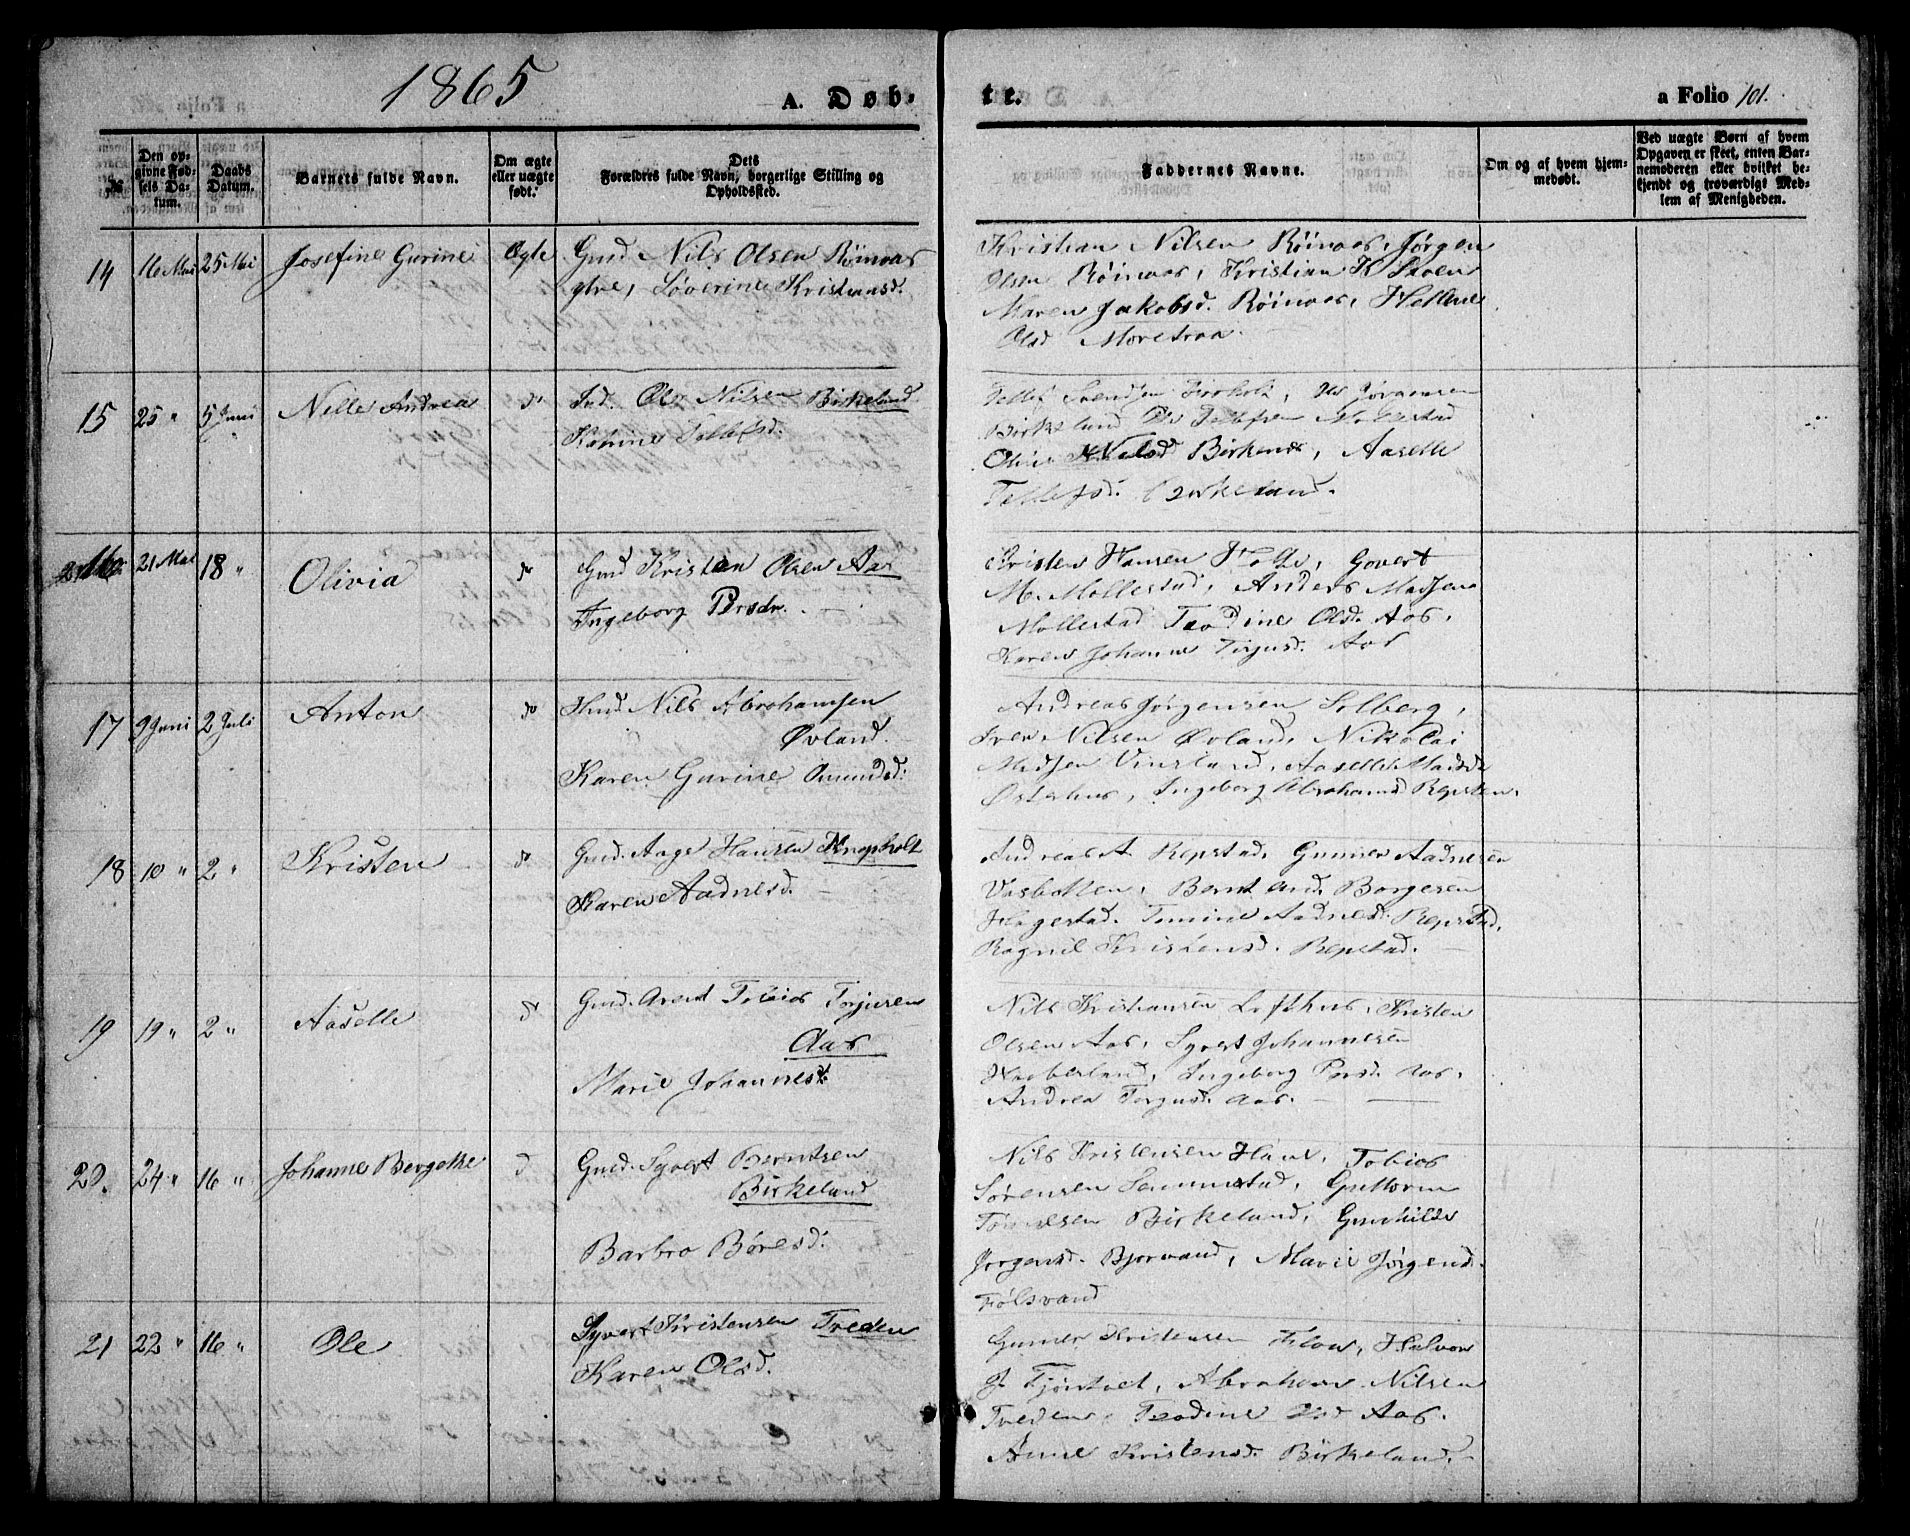 1865
A. Døb-
te.
a Folio 101.
№
Den opgivne Fødsels Datum.
Daabs Datum.
Barnets fulde Navn.
Om ægte eller uægte født.
Dets Forældres fulde Navn, borgerlige Stilling og Opholdssted.
Faddernes Navne.
Om og af hvem hjemmedøbt.
Ved uægte Børn af hvem Opgaven er skeet, enten Barnemoderen eller hvilket bekjendt og troværdigt Medlem af Menigheden.
14 16 Mai 25 Mai Josefine Gurine Ægte Gmd Nils Olsen Røinaas
Løverine Kristiansd.
Kristian Nilsen Røinaas, Jørgen
Olsen Røinaas, Kristian K
Maren Jakobsd. Røinaas, Hellene
Olsd
15 25 " 5 Juni Nelle Andrea do Ind. Ole Nilsen Birkeland
Tellefsd.
Tellef Jørgensen
Birkeland Ole Tellefsen Mollestad
Nilsd Birkenes, Aaselle
Tellefsd. Birkeland.
16 21 Mai 18 " Olivia do Gmd Kristen Olsen Aas
Ingeborg Persdr.
Kristen Hansen Govert
M. Mollestad, Anders Madsen
Mollestad Teodine Olsd. Aas,
Karen Johanne Torjusd. Aas
17 9 Juni 2 Juli Anton do Nils Abrahamsen
Øvland.
Karen Gurine Omundsd.
Andreas Jørgensen Solberg,
Nilsen Øvland, Nikolai
Madsen Vinsland, Aaselle Madsd
Østerhus, Ingeborg Abrahamsd Repsten.
18 10 " 2 " Kristen do Gmd. Aage Hansen Knapholt
Karen Aadnesd.
Andreas A Repstad, Gunner Aadnesen
Vasbotten, Berntsand Børgesen
Hægestad. Aadnesd. Repstad,
Ragnil Kristensd. Repstad.
19 19 " 2 " Aaselle do Gmd. Arent Tobias Torjusen
Aas
Marie Johannesd.
Nils Kristiansen Lofthus, Kristen
Olsen Aas, Syvert Johannesen
Haaberland, Ingeborg Persd. Aas,
Andrea Torjusd. Aas.
20. 24 " 16 " Johanne Bergette do Gmd. Syvert Berntsen
Birkeland
Barbro Børesd.
Nils Kristensen Tobias
Sørensen Gutterm
Tønnesen Birkeland, Gunhilde
Jørgensd. Bjorvand, Marie Jørgensd.
Følsvand
21 22 " 16 " Ole Syvert Kristensen Treden
Karen Olsd.
Gunner Kristensen Halvor
J. Abraham Nilsen
Treden, Teodine Olsd Aas.
Anne Kristensd. Birkeland.